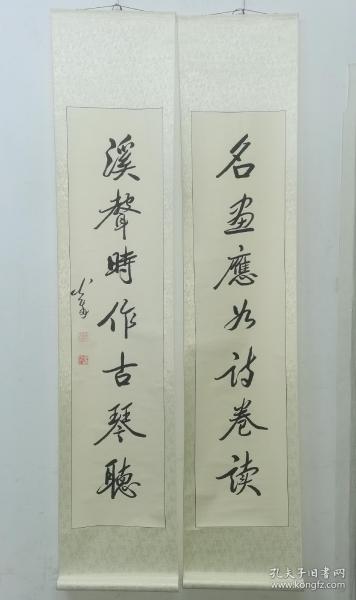 名畫應如詩卷读
溪聲時作古琴聽
心畬
孔夫子旧书网
www.kongfz.com